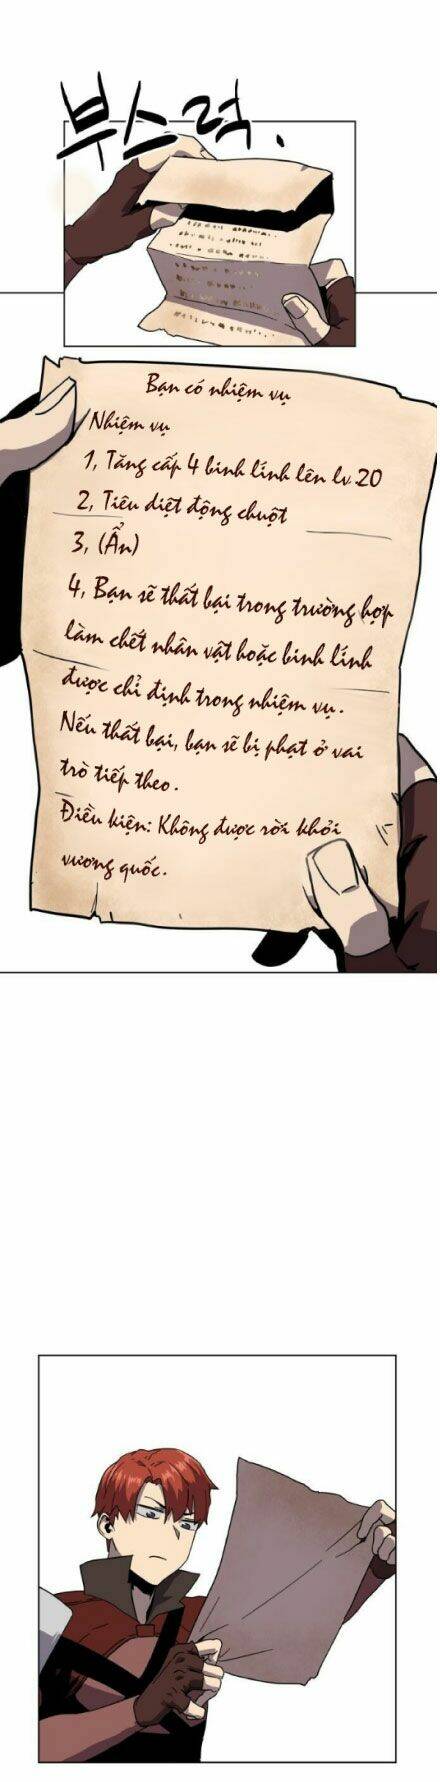 부스럭.
Bạn có nhiệm vụ
Nhiệm vụ
1, Tăng cấp 4 binh lính lên lv.20
2, Tiêu diệt động chuột
3, (Ẩn)
4, Bạn sẽ thất bại trong trường hợp
làm chết nhân vật hoặc binh lính
được chỉ định trong nhiệm vụ.
Nếu thất bại, bạn sẽ bị phạt ở vai
trò tiếp theo.
Điều kiện: Không được rời khỏi
vương quốc.